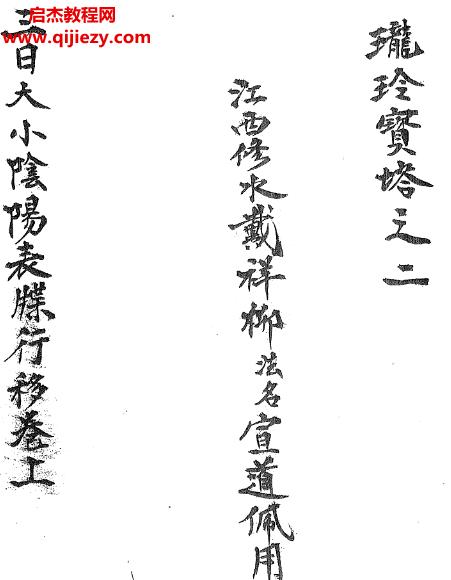 启杰教程网
www.qijiezy.com
瓏玲寳塔之二
江西修水戴祥柳法名宣道佩用
三日大小陰陽表牒行移卷上